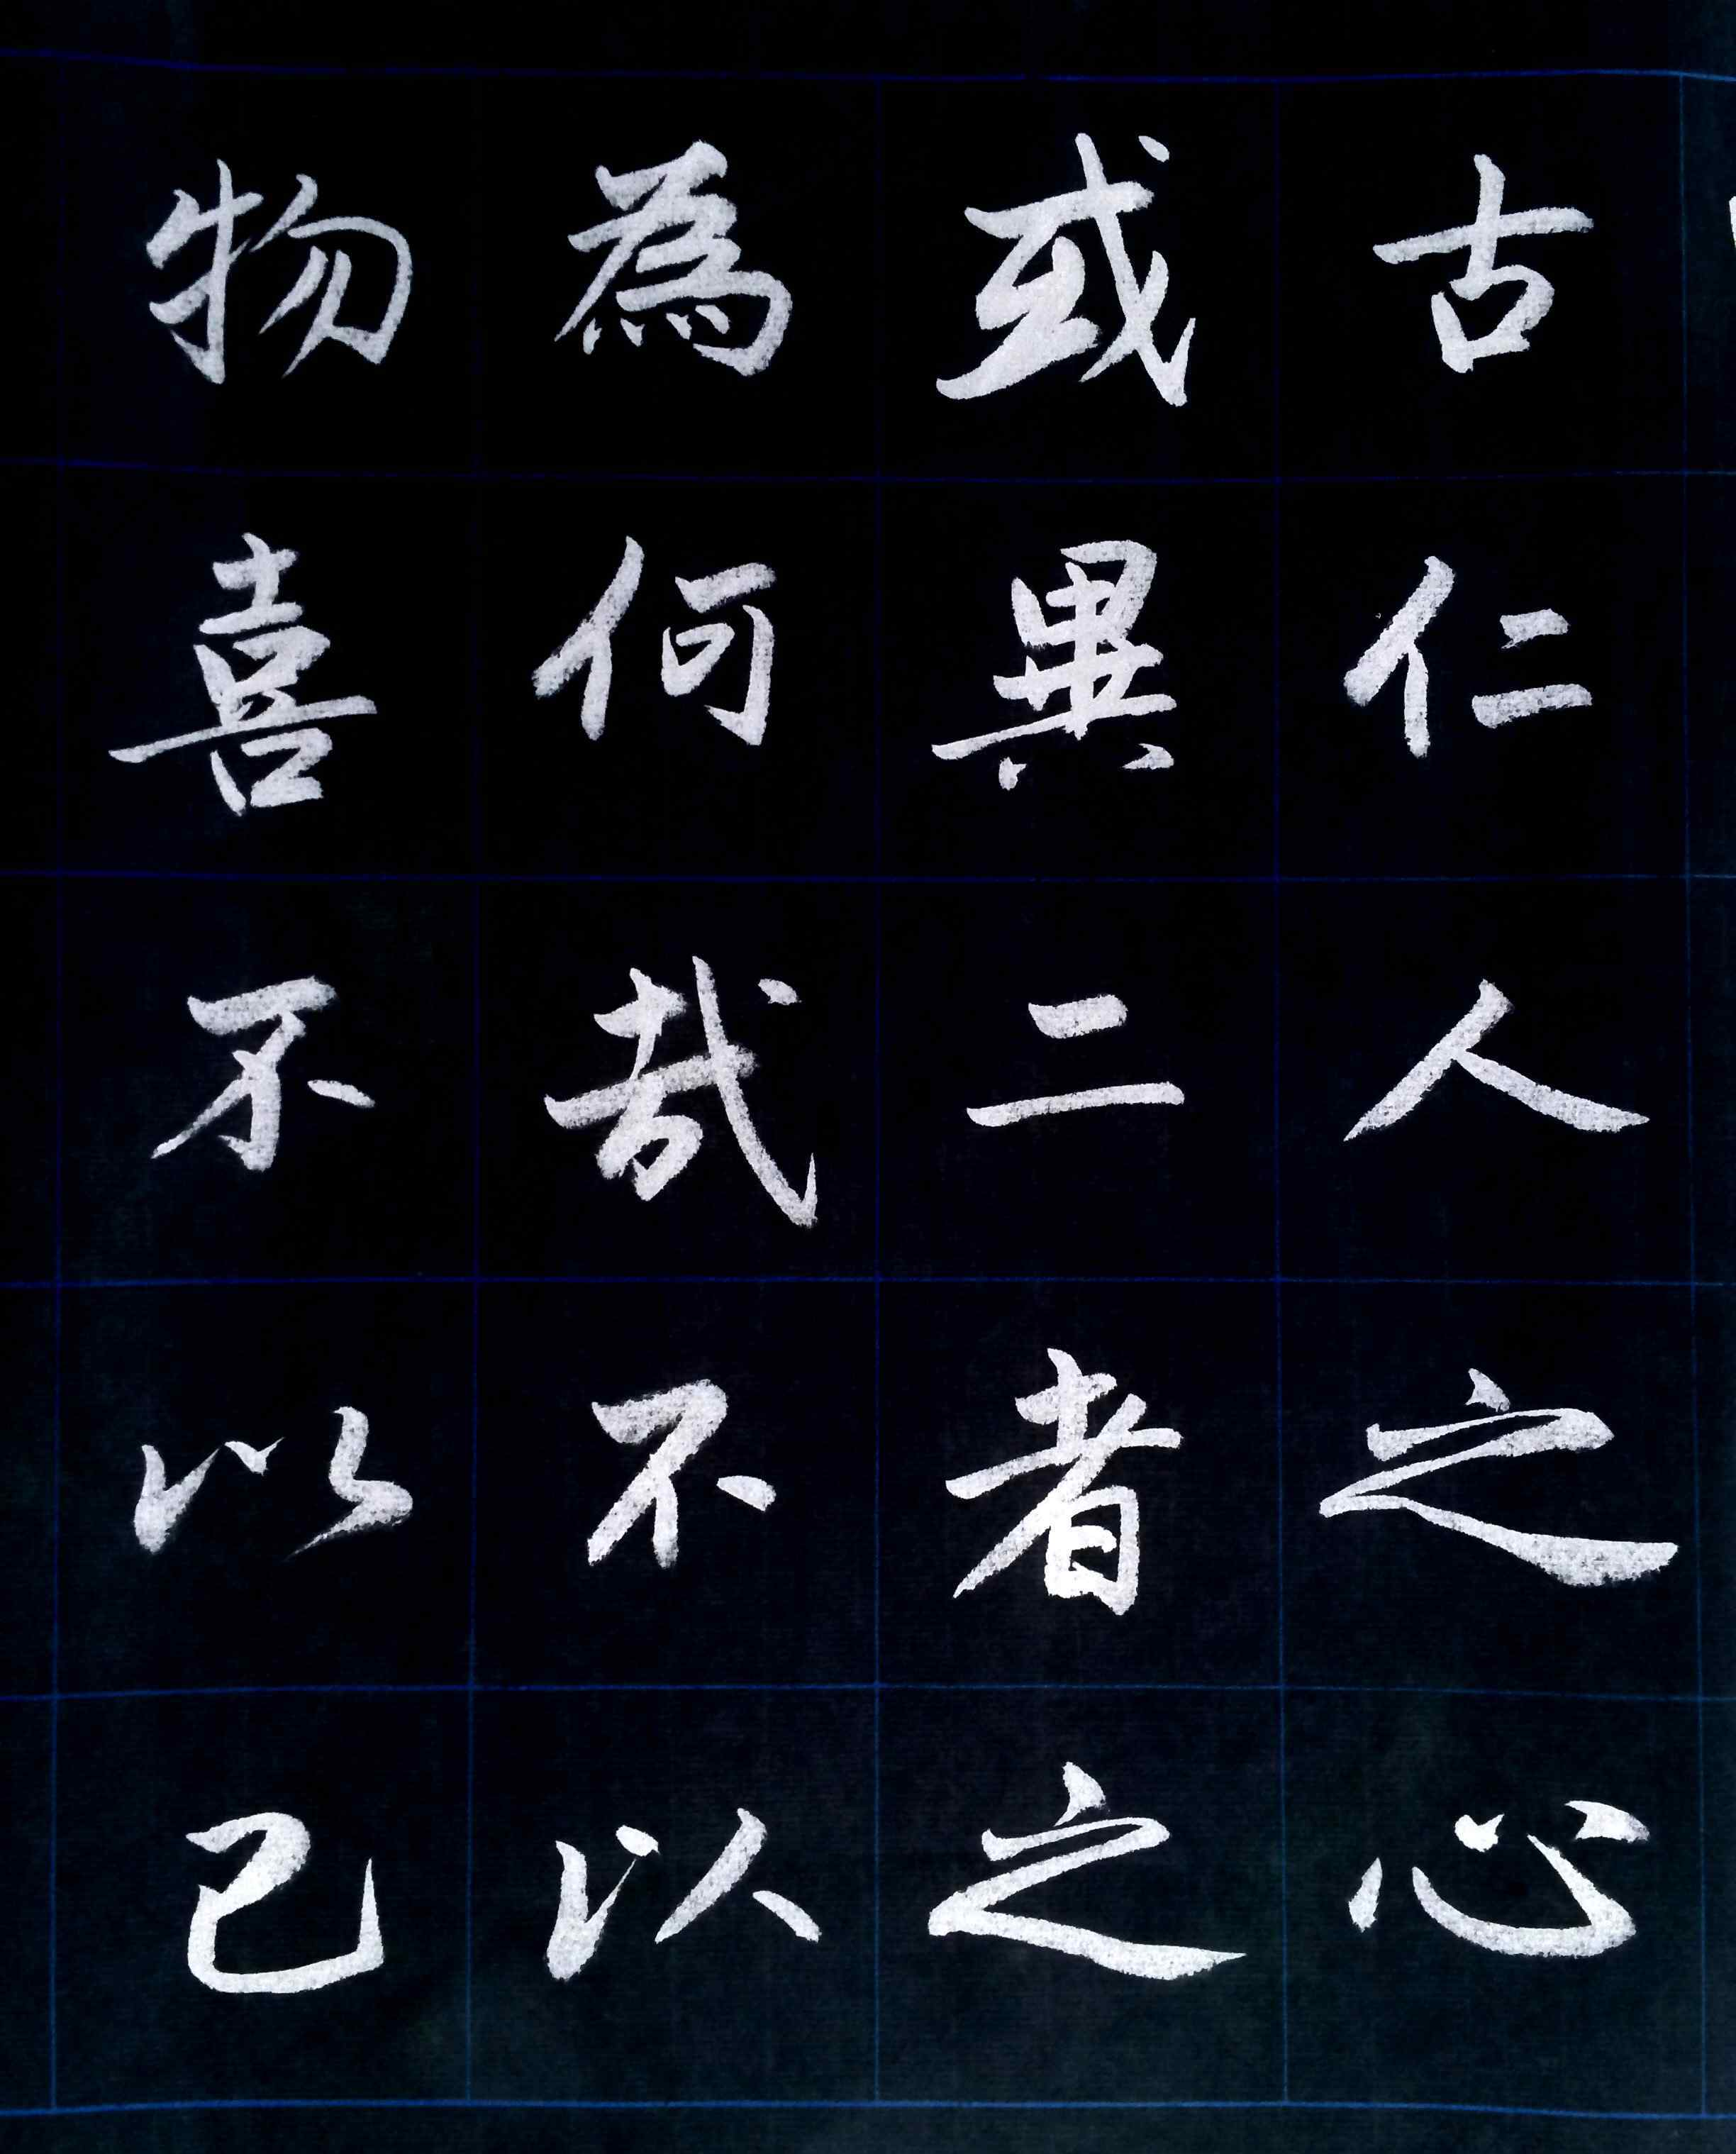 古仁人之心
或異二者之
為何哉不以
物喜不以己